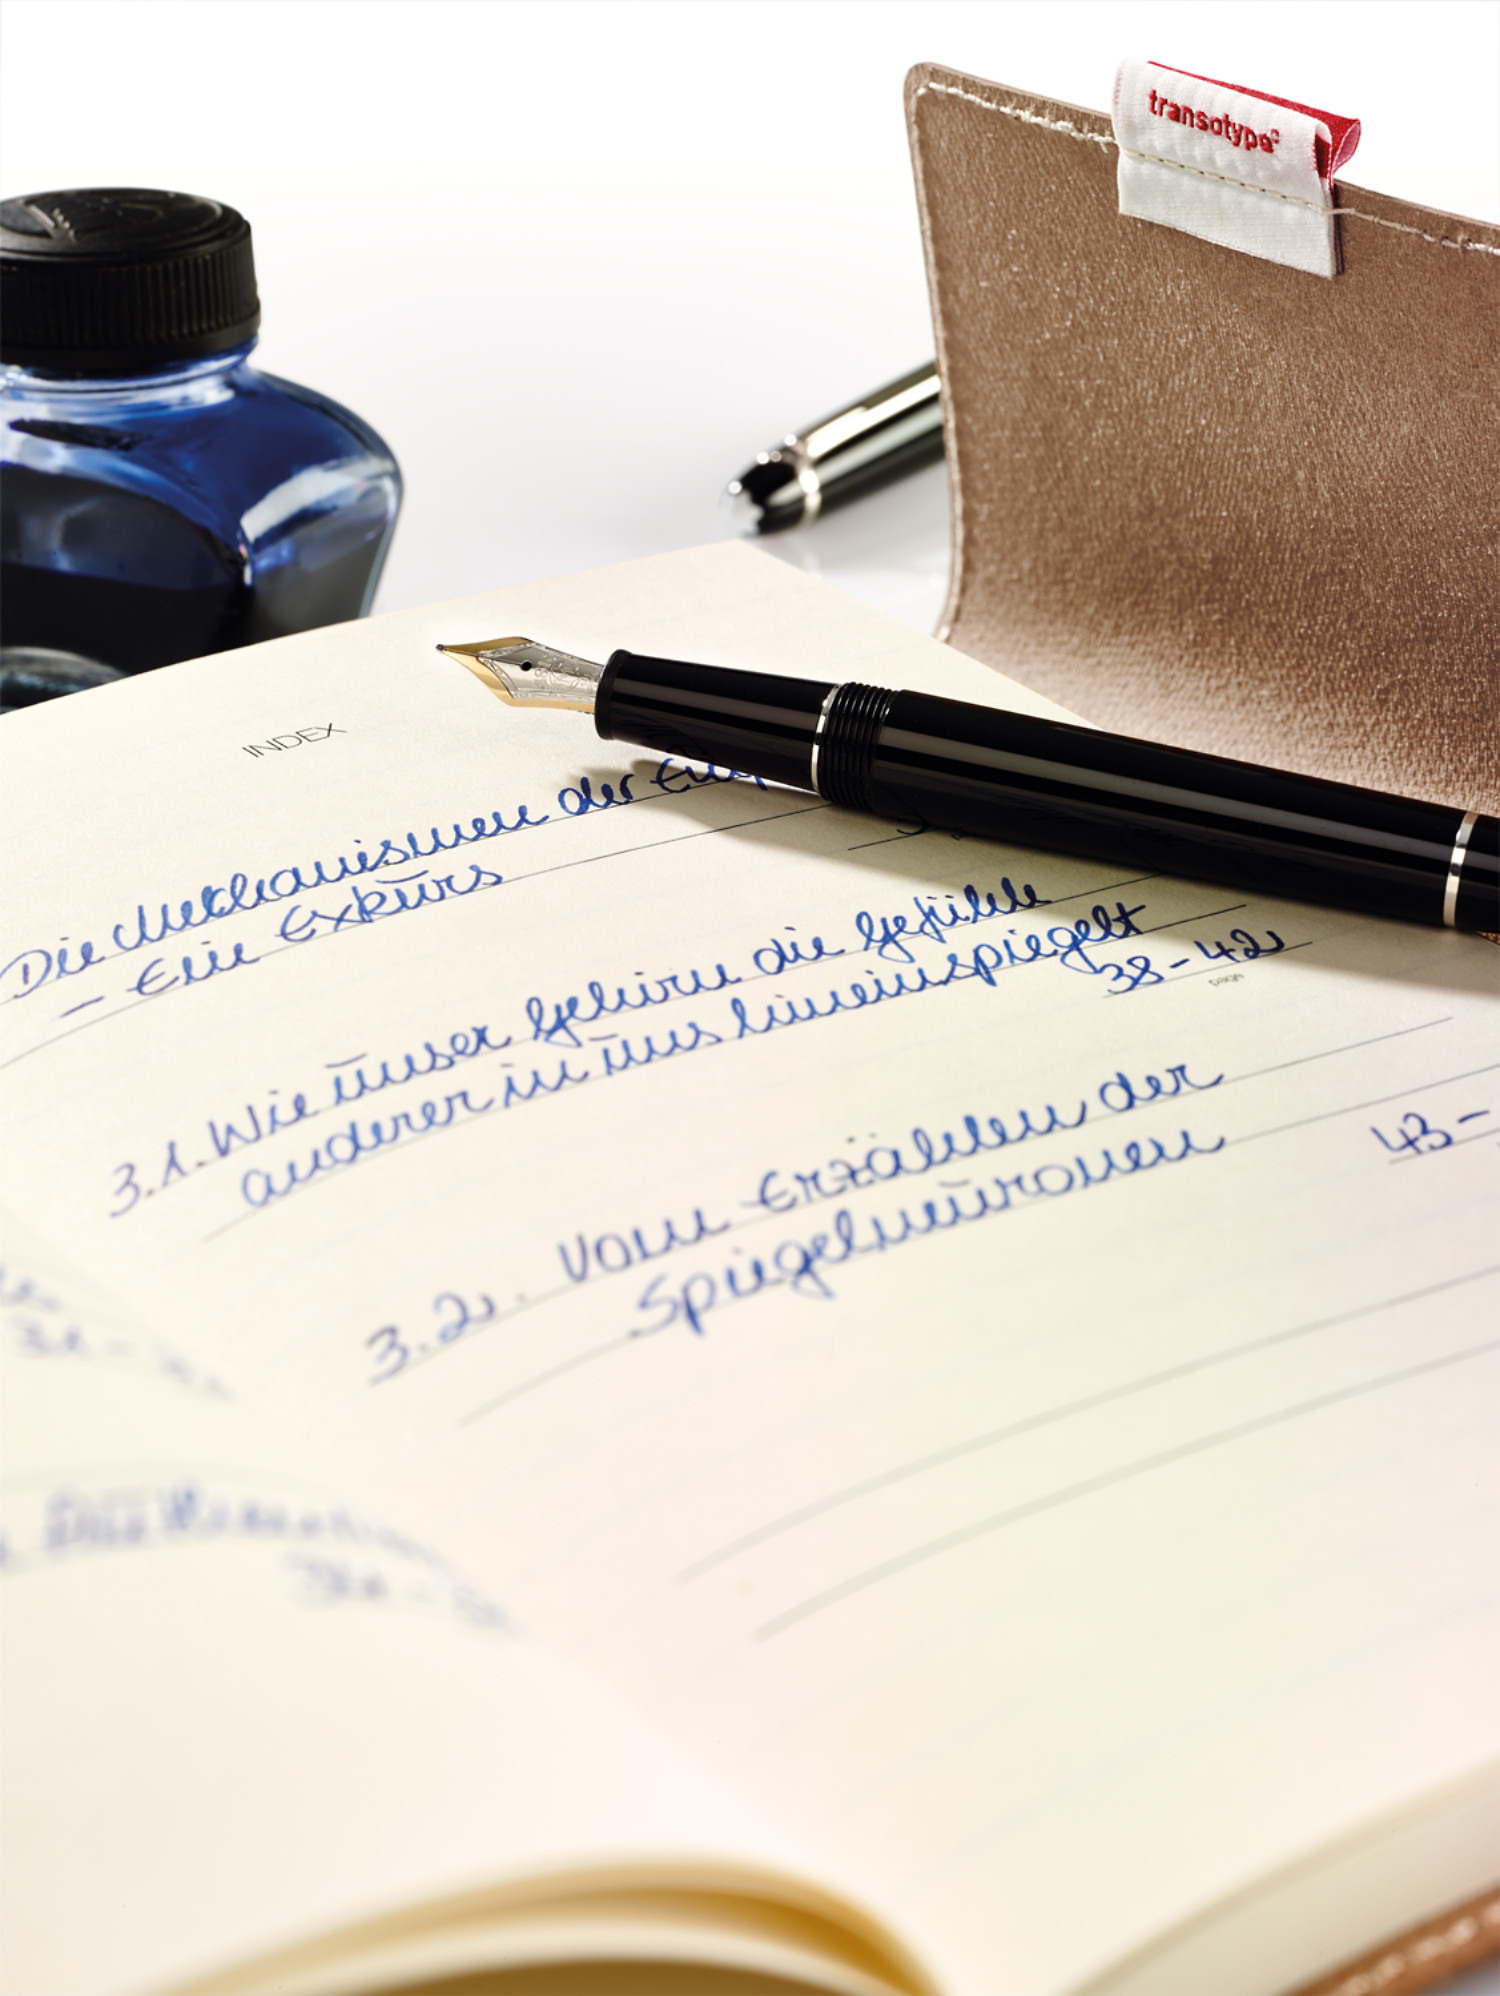 transotype
INDEX
Die Mechanismen der
– Ein Exkurs
3.1. Wie unser Gehirn die Gefühle
anderer in uns hineinspiegelt
38-42
page
3.2. Vom Erzählen der
Spiegelneuronen
43-